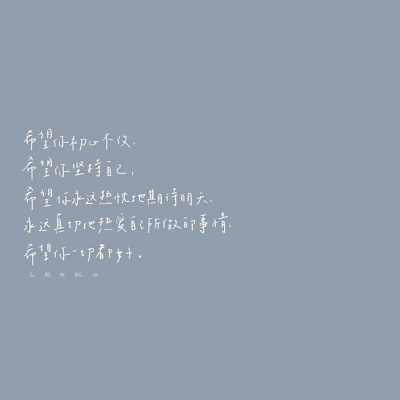 希望你初心不改，
希望你坚持自己，
希望你永远热忱地期待明天，
永远真切地热爱自己所做的事情，
希望你一切都好。